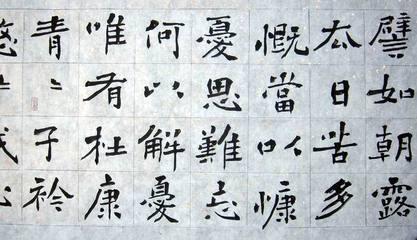 譬如朝露
去日苦多
慨當以慷
憂思難忘
何以解憂
唯有杜康
青〻子衿
悠〻我心